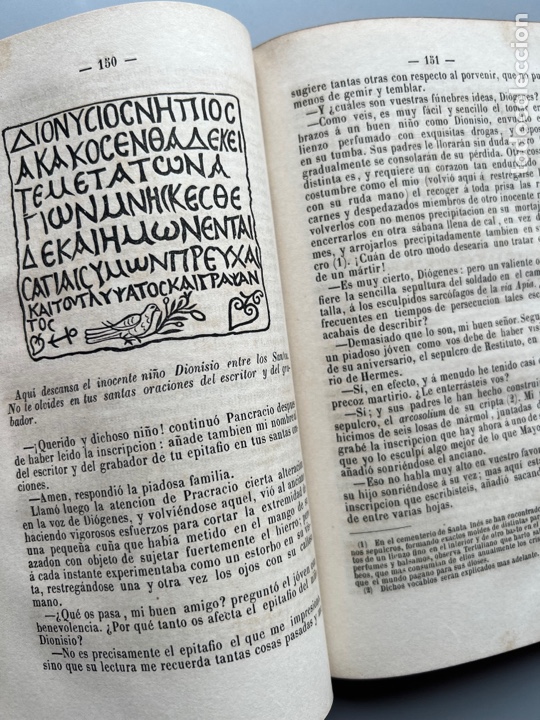 — 150 —
ΔΙΟΝΥCΙΟCΝΗΠΙΟC
ΑΚΑΚΟCΕΝΘΑΔΕΚΕΙ
ΤΕΜΕΤΑΤѠΝΑ
ΓΙѠΝΜΝΗCΚΕCΘΕ
ΔΕΚΑΙΗΜѠΝΕΝΤΑΙ
CΑΓΙΑΙCΥΜѠΝΠΡΕΥΧΑΙ
ΚΑΙΤΟΥΓΛΥΨΑΤΟCΚΑΙΓΡΑΨΑΝ
ΤΟC
Aqui descansa el inocente niño Dionisio entre los Santos.
No le olvides en tus santas oraciones del escritor y del gra-
bador.
—¡Querido y dichoso niño! continuó Pancracio despues
de haber leido la inscripcion: añade tambien mi nombre al
del escritor y del grabador de tu epitafio en tus santas
ciones.
—Amen, respondió la piadosa familia.
Llamó luego la atencion de Pracracio cierta
en la voz de Diógenes, y volviéndose aquel, vió al anciano
haciendo vigorosos esfuerzos para cortar la extremidad
una pequeña cuña que habia metido en el mango de
azadon con objeto de sujetar fuertemente el hierro; pero
á cada instante experimentaba como un estorbo en su
ta, restregándose una y otra vez los ojos con su
mano.
—¿Qué os pasa, mi buen amigo? preguntó el jóven con
benevolencia. ¿Por qué tanto os afecta el epitafio del
Dionisio?
—No es precisamente el epitafio el que me impresiona
sino que su lectura me recuerda tantas cosas pasadas y
— 151 —
sugiere tantas otras con respecto al porvenir, que no puedo
menos de gemir y temblar.
—Y ¿cuáles son vuestras fúnebres ideas, Diógenes?
—Como veis, es muy fácil y sencillo el tomar
brazos á un buen niño como Dionisio, envolverlo
lienzo perfumado con exquisitas drogas, y
en su tumba. Sus padres le llorarán sin duda, pero
gradualmente se consolarán de su pérdida. Otra cosa
distinta es, y requiere un corazon tan endurecido
costumbre como el mio (volvió aquí á restregarse
con su ruda mano) recoger á toda prisa las
carnes y despedazados miembros de otro inocente
volverlos con no menos precipitacion en su mortaja
encerrarlos en otra sábana llena de cal, en vez de
mas, y arrojarlos precipitadamente tambien en
cro (1). ¡Cuán de otro modo desearia uno tratar
de un mártir!
—Es muy cierto, Diógenes; pero un valiente
fiere la sencilla sepultura del soldado en el campo
talla, á los esculpidos sarcófagos de la via Apia.
frecuentes en tiempos de persecucion tales escenas
acabais de describir?
—Demasiado que lo son, mi buen señor. Seguro
un piadoso jóven como vos debe de haber visitado
de su aniversario, el sepulcro de Restituto, en
rio de Hermes.
—Sí, en efecto, y á menudo he tenido casi
precoz martirio. ¿Le enterrásteis vos?
—Sí; y sus padres le han hecho construir
sepulcro, el arcosolium de su cripta (2). Mi padre
hicimos de seis losas de mármol, juntadas
grabé la inscripcion que hay ahora á uno de
que yo lo esculpí algo mejor de lo que Mayo
añadió sonriéndose el anciano.
—Eso no habla muy alto en vuestro favor
su hijo sonriéndose á su vez; mas aquí está
inscripcion que escribísteis, añadió sacando
de entre varias hojas.
(1) En el cementerio de Santa Inés se han encontrado
nos sepulcros, formando exactos moldes de distintas
tos de un lienzo fino en el interior y de otro mas basto
perfumes y bálsamos, observa Tertuliano que harto
beos, que mas consumian de ellos anualmente los cristianos
que el mundo pagano para sus dioses.
(2) Dichos vocablos serán explicados mas adelante.
todocoleccion